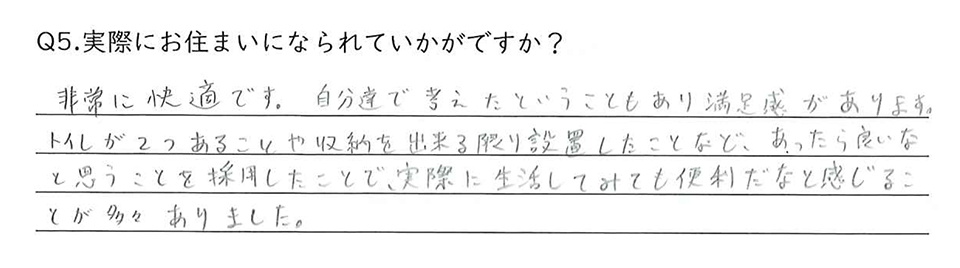 Q5.実際にお住まいになられていかがですか？
非常に快適です。自分達で考えたということもあり満足感があります。
トイレが2つあることや収納を出来る限り設置したことなど、あったら良いな
と思うことを採用したことで、実際に生活してみても便利だなと感じるこ
とが多々ありました。